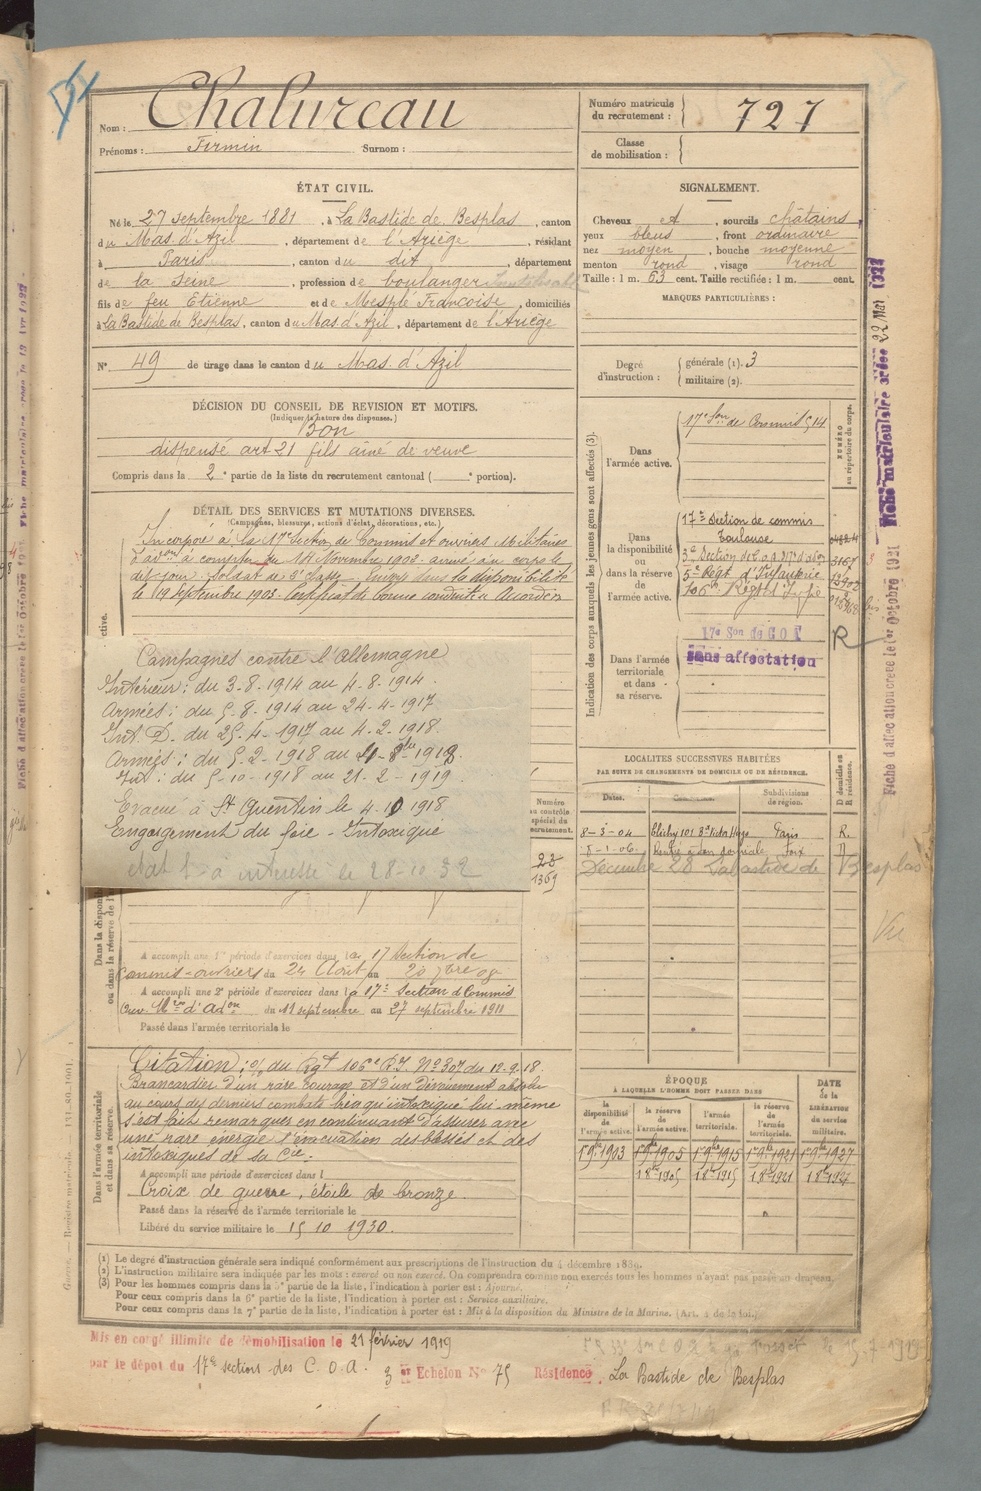 Chalureau
Nom :
Prénoms : Firmin Surnom :
Numéro matricule du recrutement : 727
Classe de mobilisation :
ÉTAT CIVIL.
Né le 27 septembre 1881, à La Bastide de Besplas, canton
du Mas d'Azil, département de l'Ariège, résidant
à Paris, canton du dit, département
de la Seine, profession de boulanger
fils de feu Etienne et de Mesplé Francoise, domiciliés
à La Bastide de Besplas, canton du Mas d'Azil, département de l'Ariège
N° 49 de tirage dans le canton du Mas d'Azil
DÉCISION DU CONSEIL DE REVISION ET MOTIFS.
(Indiquer la nature des dispenses.)
Bon
dispensé art 21 fils aîné de veuve
Compris dans la 2e partie de la liste du recrutement cantonal ( e portion).
DÉTAIL DES SERVICES ET MUTATIONS DIVERSES.
(Campagnes, blessures, actions d'éclat, décorations, etc.)
Incorporé à la 17e Section de Commis et ouvriers Militaires
d'adon à compter du 14 Novembre 1902 arrivé au corps le
dit jour. Soldat de 2e classe. dans la disponibilité
le 19 septembre 1903. Certificat de bonne conduite Accordé
Campagnes contre l'Allemagne
Intérieur : du 3-8-1914 au 4-8-1914.
Armées : du 5-8-1914 au 24-4-1917
Int. D. du 25-4-1917 au 4-2-1918.
Armées : du 5-2-1918 au
Int : du 5-10-1918 au 21-2-1919.
Evacué à St Quentin le 4-10 1918
Engorgement du foie - Intoxiqué
à intéressé le 28-10-32
Numéro au contrôle spécial du recrutement.
23
1369
A accompli une 1re période d'exercices dans la 17 Section de
Commis-ouvriers du 24 Août au 20 7bre 08
A accompli une 2e période d'exercices dans la 17e Section d Commis
Ouv. Mres d'Adon du 19 septembre au 27 septembre 1911
Passé dans l'armée territoriale le
Dans l'armée territoriale et dans sa réserve.
Citation : o/ du Rgt 106e R.I. N° 307 du 12.9.18.
Brancardier d'un rare courage et d'un dévouement absolu
au cours des derniers combats bien qu'intoxiqué lui-même
s'est fait remarquer en continuant d'assurer avec
une rare énergie l'évacuation des blessés et des
intoxiqués de sa Cie.
A accompli une période d'exercices dans l
Croix de guerre, étoile de bronze.
Passé dans la réserve de l'armée territoriale le
Libéré du service militaire le 15 10 1930.
SIGNALEMENT.
Cheveux et, sourcils châtains,
yeux bleus, front ordinaire
nez moyen, bouche moyenne
menton rond, visage rond
Taille : 1 m. 63 cent. Taille rectifiée : 1 m. cent.
MARQUES PARTICULIÈRES :
Degré d'instruction : générale (1). 3
militaire (2).
Indication des corps auxquels les jeunes gens sont affectés (3).
NUMÉRO au répertoire du corps.
Dans l'armée active. 17e Son de Commis 514
Dans la disponibilité ou dans la réserve de l'armée active.
17e Section de commis
Toulouse
5e Regt d'Infanterie
106e Regt d'Infie
Dans l'armée territoriale et dans sa réserve.
17e Son de COA
Sans affectation
R
LOCALITÉS SUCCESSIVES HABITÉES
PAR SUITE DE CHANGEMENTS DE DOMICILE OU DE RÉSIDENCE.
Dates. Communes. Subdivisions de région. D domicile ou R résidence.
8-3-04 Clichy 101 Bd Victor Hugo Paris R.
5-1-06. Rentré à son domicile Foix D
Decembre 28 Labastide de Besplas
Vu
ÉPOQUE
À LAQUELLE L'HOMME DOIT PASSER DANS
DATE de la LIBÉRATION du service militaire.
la disponibilité de l'armée active. la réserve de l'armée active. l'armée territoriale. la réserve de l'armée territoriale.
1er 9bre 1903 1er 9bre 1905 1er 9bre 1915 1er 9bre 1921 1er 9bre 1927
1 8bre 1905 1 8bre 1915 1 8bre 1921 1 8bre 1927
(1) Le degré d'instruction générale sera indiqué conformément aux prescriptions de l'instruction du 4 décembre 1889.
(2) L'instruction militaire sera indiquée par les mots : exercé ou non exercé. On comprendra comme non exercés tous les hommes n'ayant pas passé au drapeau.
(3) Pour les hommes compris dans la 5e partie de la liste, l'indication à porter est : Ajourné.
Pour ceux compris dans la 6e partie de la liste, l'indication à porter est : Service auxiliaire.
Pour ceux compris dans la 7e partie de la liste, l'indication à porter est : Mis à la disposition du Ministre de la Marine. (Art. 4 de la loi.)
Mis en congé illimité de démobilisation le 21 février 1919
par le dépôt du 17e section des C.O.A. 3 Echelon N° 75 Résidence La Bastide de Besplas
Fiche d'affectation créée le 1er Octobre 1921
Fiche matriculaire créée 22 Mai